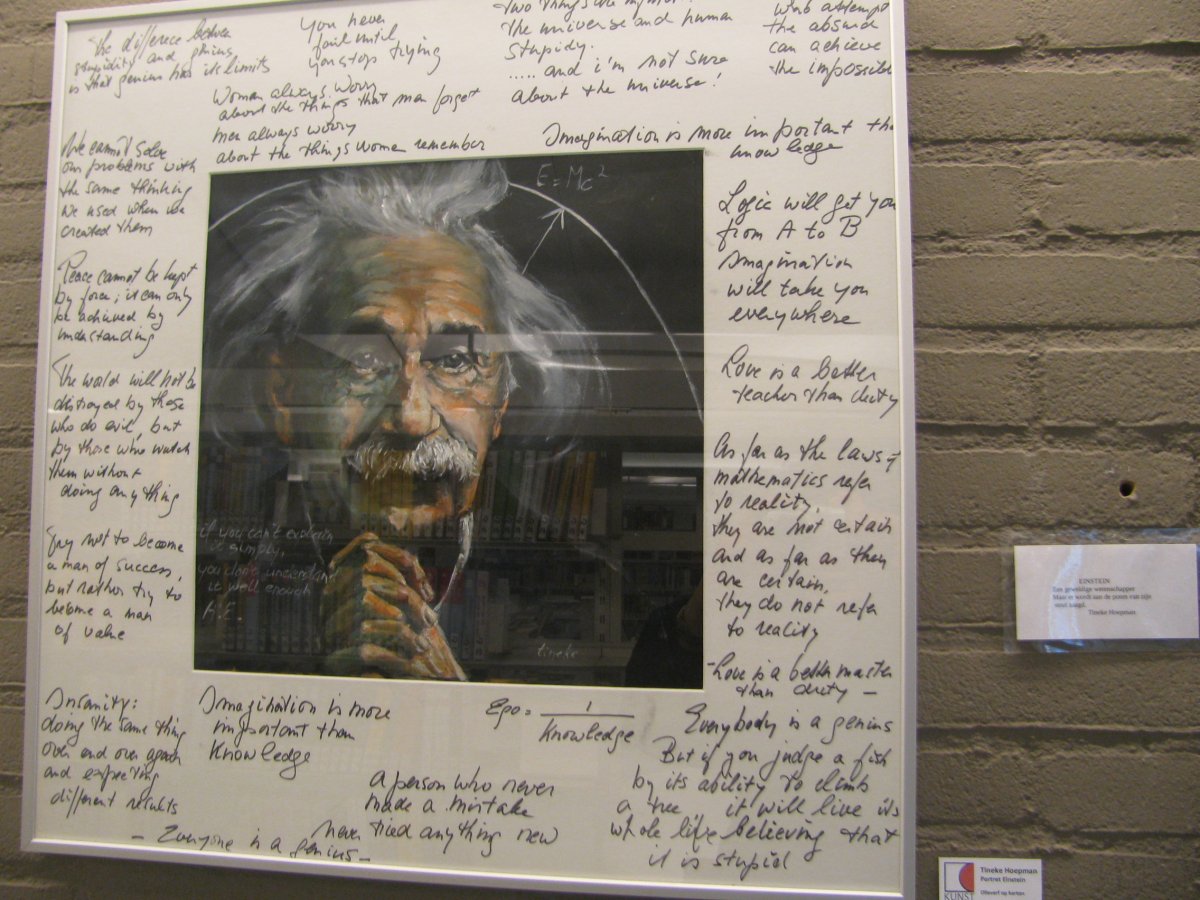 the difference between
stupidity and genius
is that genius has its limits
you never
fail until
you stop trying
The universe and human
stupidy.
..... and i'm not sure
about the universe!
the absurd
can achieve
the impossible
Woman always worry
about the things that man forget
men always worry
about the things women remember
Imagination is more important tha
knowledge
We cannot solve
our problems with
the same thinking
we used when we
created them
Peace cannot be kept
by force; it can only
be achieved by
understanding
The world will not be
destroyed by those
who do evil, but
by those who watch
them without
doing any thing
Try not to become
a man of success,
but rather try to
become a man
of value
Insanity:
doing the same thing
over and over again
and expecting
different results
E=Mc²
if you can't explain
it simply,
you don't understand
it well enough
A.E.
tineke
Logic will get you
from A to B
Imagination
will take you
everywhere
Love is a better
teacher than duty
As far as the laws of
mathematics refer
to reality,
they are not certain
and as far as they
are certain,
they do not refer
to reality
-Love is a better master
than duty -
Imagination is more
important than
Knowledge
Ego = 1
Knowledge
Everybody is a genius
But if you judge a fish
by its ability to climb
a tree it will live its
whole life believing that
it is stupid
a person who never
made a mistake
never tried anything new
- Everyone is a genius -
EINSTEIN
Een geweldige wetenschapper
Maar er wordt aan de poten van zijn
stoel zaagd.
Tineke Hoepman
Tineke Hoepman
Portret Einstein
Olieverf op karton
KUNST